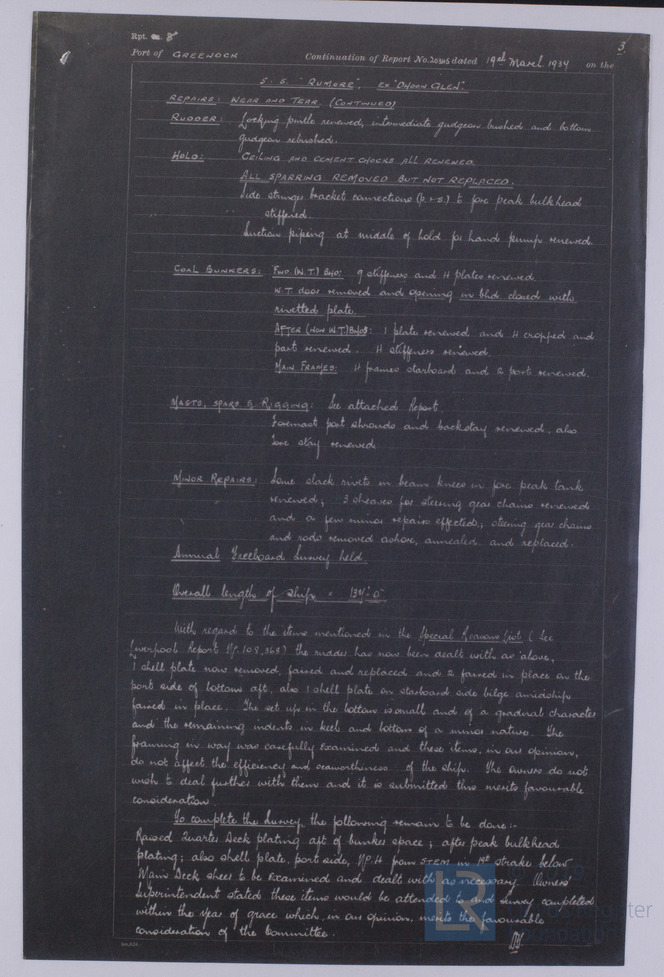 Rpt. 8
3
Port of GREENOCK Continuation of Report No. 20305 dated 19th March 1934 on the
S.S. "RUMORE", EX "DHOON GLEN"
REPAIRS: WEAR AND TEAR. (CONTINUED)
RUDDER: Locking pintle renewed, intermediate gudgeon bushed and bottom
gudgeon rebushed.
HOLD: CEILING AND CEMENT CHOCKS ALL RENEWED.
ALL SPARRING REMOVED BUT NOT REPLACED.
Side stringer bracket connections (P. & S.) to fore peak bulkhead
stiffened.
Suction piping at middle of hold for hand pump renewed.
COAL BUNKERS: FWD. (W.T.) BHD: 9 stiffeners and 4 plates renewed.
W.T. door removed and opening in bhd. closed with
rivetted plate.
AFTER (NON W.T.) BHD: 1 plate renewed and 4 cropped and
part renewed. 4 stiffeners renewed.
MAIN FRAMES: 4 frames starboard and 2 port renewed.
MASTS, SPARS & RIGGING: See attached Report.
Foremast port shrouds and backstay renewed, also
fore stay renewed.
MINOR REPAIRS: Some slack rivets in beam knees in fore peak tank
renewed; 3 sheaves for steering gear chains renewed
and a few minor repairs effected; steering gear chains
and rods removed ashore, annealed and replaced.
Annual Freeboard Survey held.
Overall length of Ship = 134'-0"
With regard to the items mentioned in the Special Reasons List (See
Liverpool Report No. 108,363) the rudder has now been dealt with as above,
1 shell plate now removed, faired and replaced and 2 faired in place on the
port side of bottom aft, also 1 shell plate on starboard side bilge amidships
faired in place. The set up in the bottom is small and of a gradual character
and the remaining indents in keel and bottom of a minor nature. The
framing in way was carefully examined and these items, in our opinion,
do not affect the efficiency and seaworthiness of the ship. The owners do not
wish to deal further with them and it is submitted this merits favourable
consideration.
To complete the Survey, the following remain to be done:-
Raised Quarter Deck plating aft of bunker space; after peak bulkhead
plating; also shell plate, port side, No. 4 from STEM in 1st strake below
Main Deck sheer to be Examined and dealt with as necessary. Owners'
Superintendent stated these items would be attended to and survey completed
within the year of grace which, in our opinion, merits the favourable
consideration of the Committee.